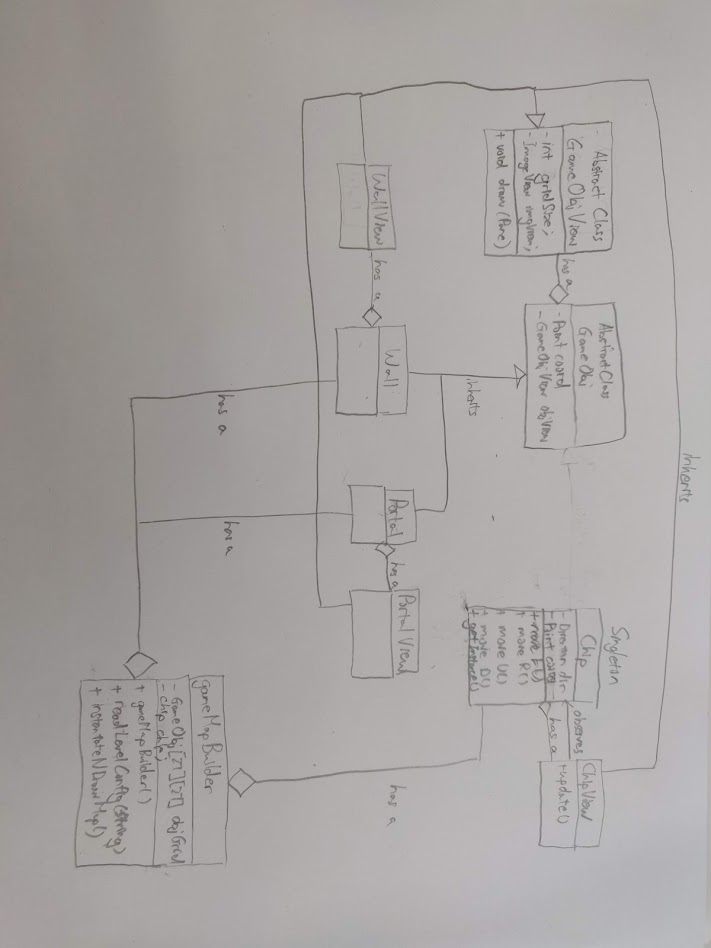 inherits
Abstract Class
GameObjView
- int gridSize;
- ImageView imgView;
+ void draw (Pane)
has a
Abstract Class
GameObj
- Point coord
- GameObjView objView
Singleton
Chip
- Direction dir
- Point
+ move L()
+ move R()
+ move U()
+ move D()
+ getInstance()
observes
has a
ChipView
+update()
inherits
WallView
has a
Wall
Portal
has a
Portal View
has a
has a
has a
gameMapBuilder
- GameObj[27][27] objGrid
- chip chip;
+ gameMapBuilder()
+ readLevelConfig(String)
+ instantiateNDrawMap()